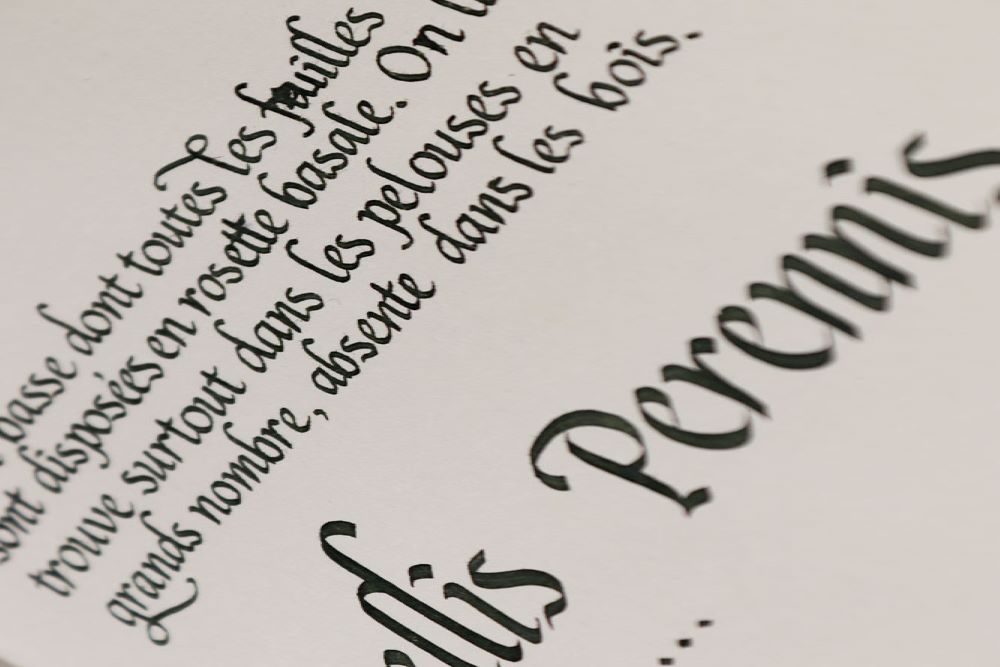 basse dont toutes les feuilles
sont disposées en rosette basale. On
trouve surtout dans les pelouses en
grands nombre, absente dans les bois.
Perennis
ellis
...